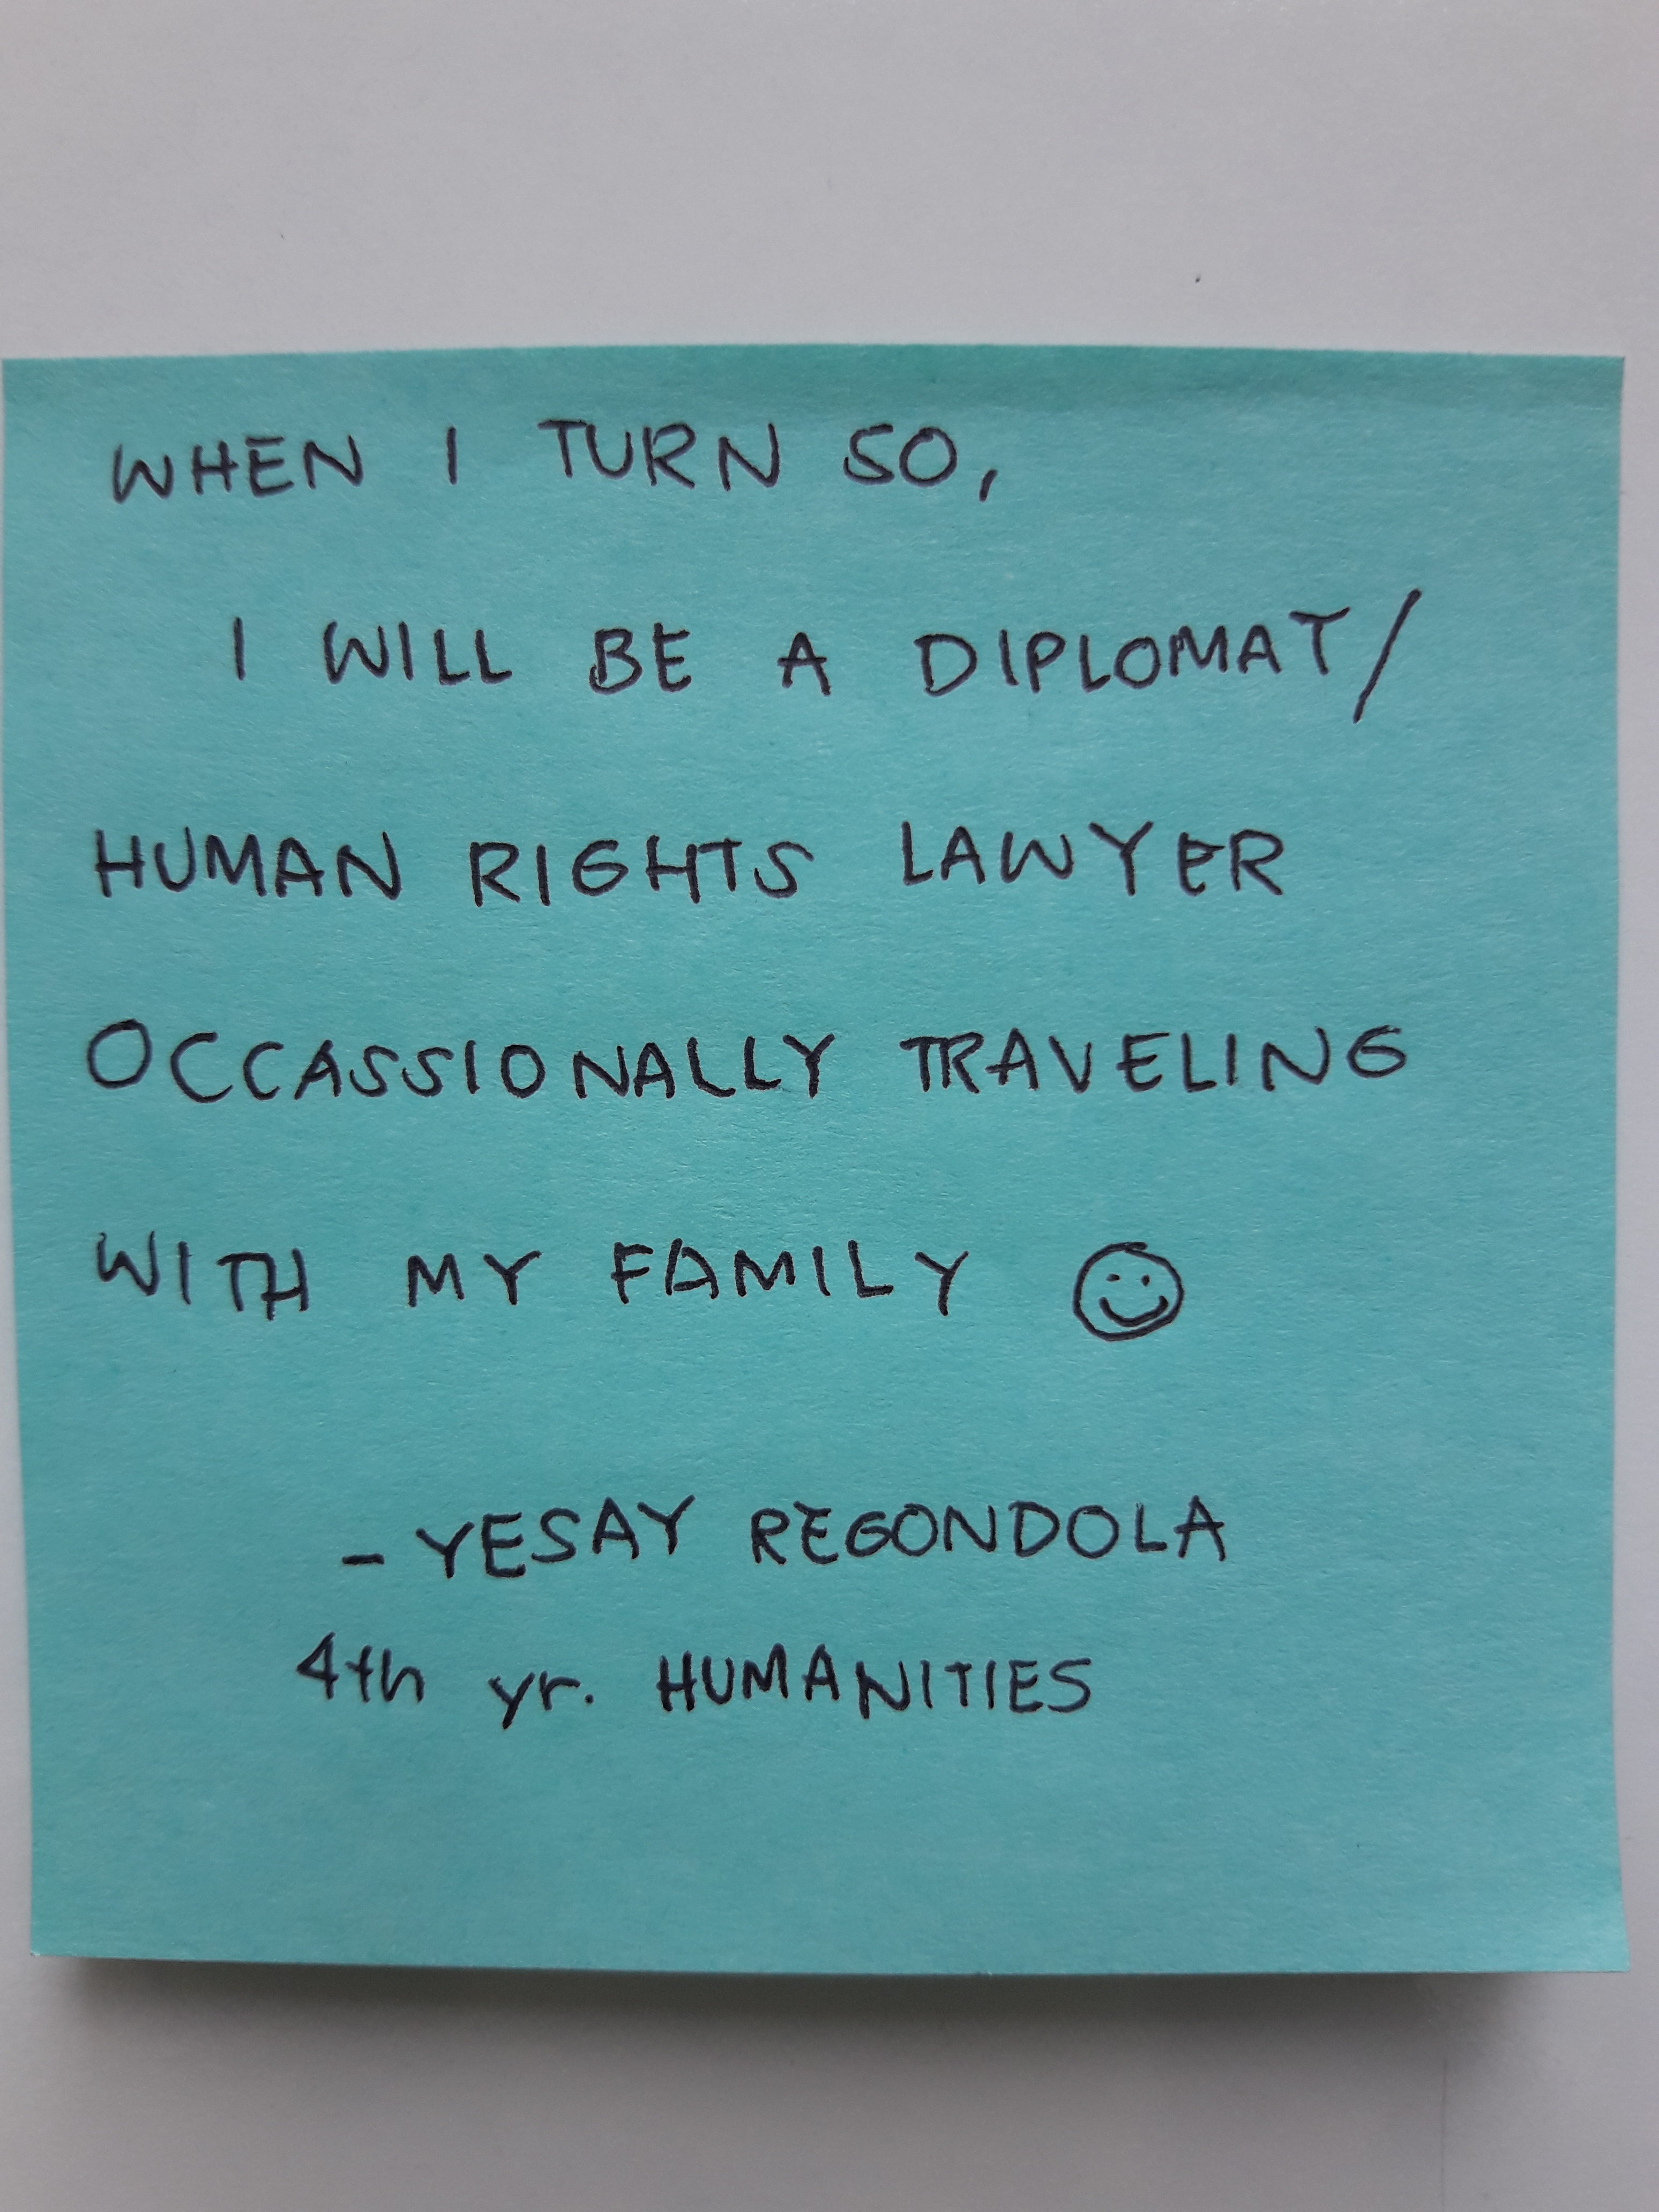 WHEN I TURN 50,
I WILL BE A DIPLOMAT/
HUMAN RIGHTS LAWYER
OCCASSIONALLY TRAVELING
WITH MY FAMILY ☺
- YESAY REGONDOLA
4th yr. HUMANITIES